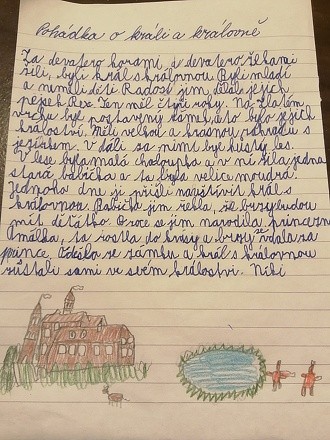 Pohádka o králi a královně
Za devatero horami, a devatero řekami
žili, byli král s královnou. Byli mladí
a neměli děti. Radost jim dělal jejich
pejsek Rex. Ten měl čtyři roky. Na zlatém
vrchu byl postavený zámek, a to bylo jejich
království. Měli velkou a krásnou zahradu s
jezírkem. V dáli za nimi byl hustý les.
V lese byla malá chaloupka a v ní žila jedna
stará babička a ta byla velice moudrá.
Jednoho dne ji přišli navštívit král s
královnou. Babička jim řekla, že brzy budou
mít děťátko. O roce se jim narodila princezna
Amálka, ta rostla do krásy a brzy se vdala za
prince. Odešla ze zámku a král s královnou
zůstali sami ve svém království. Niki